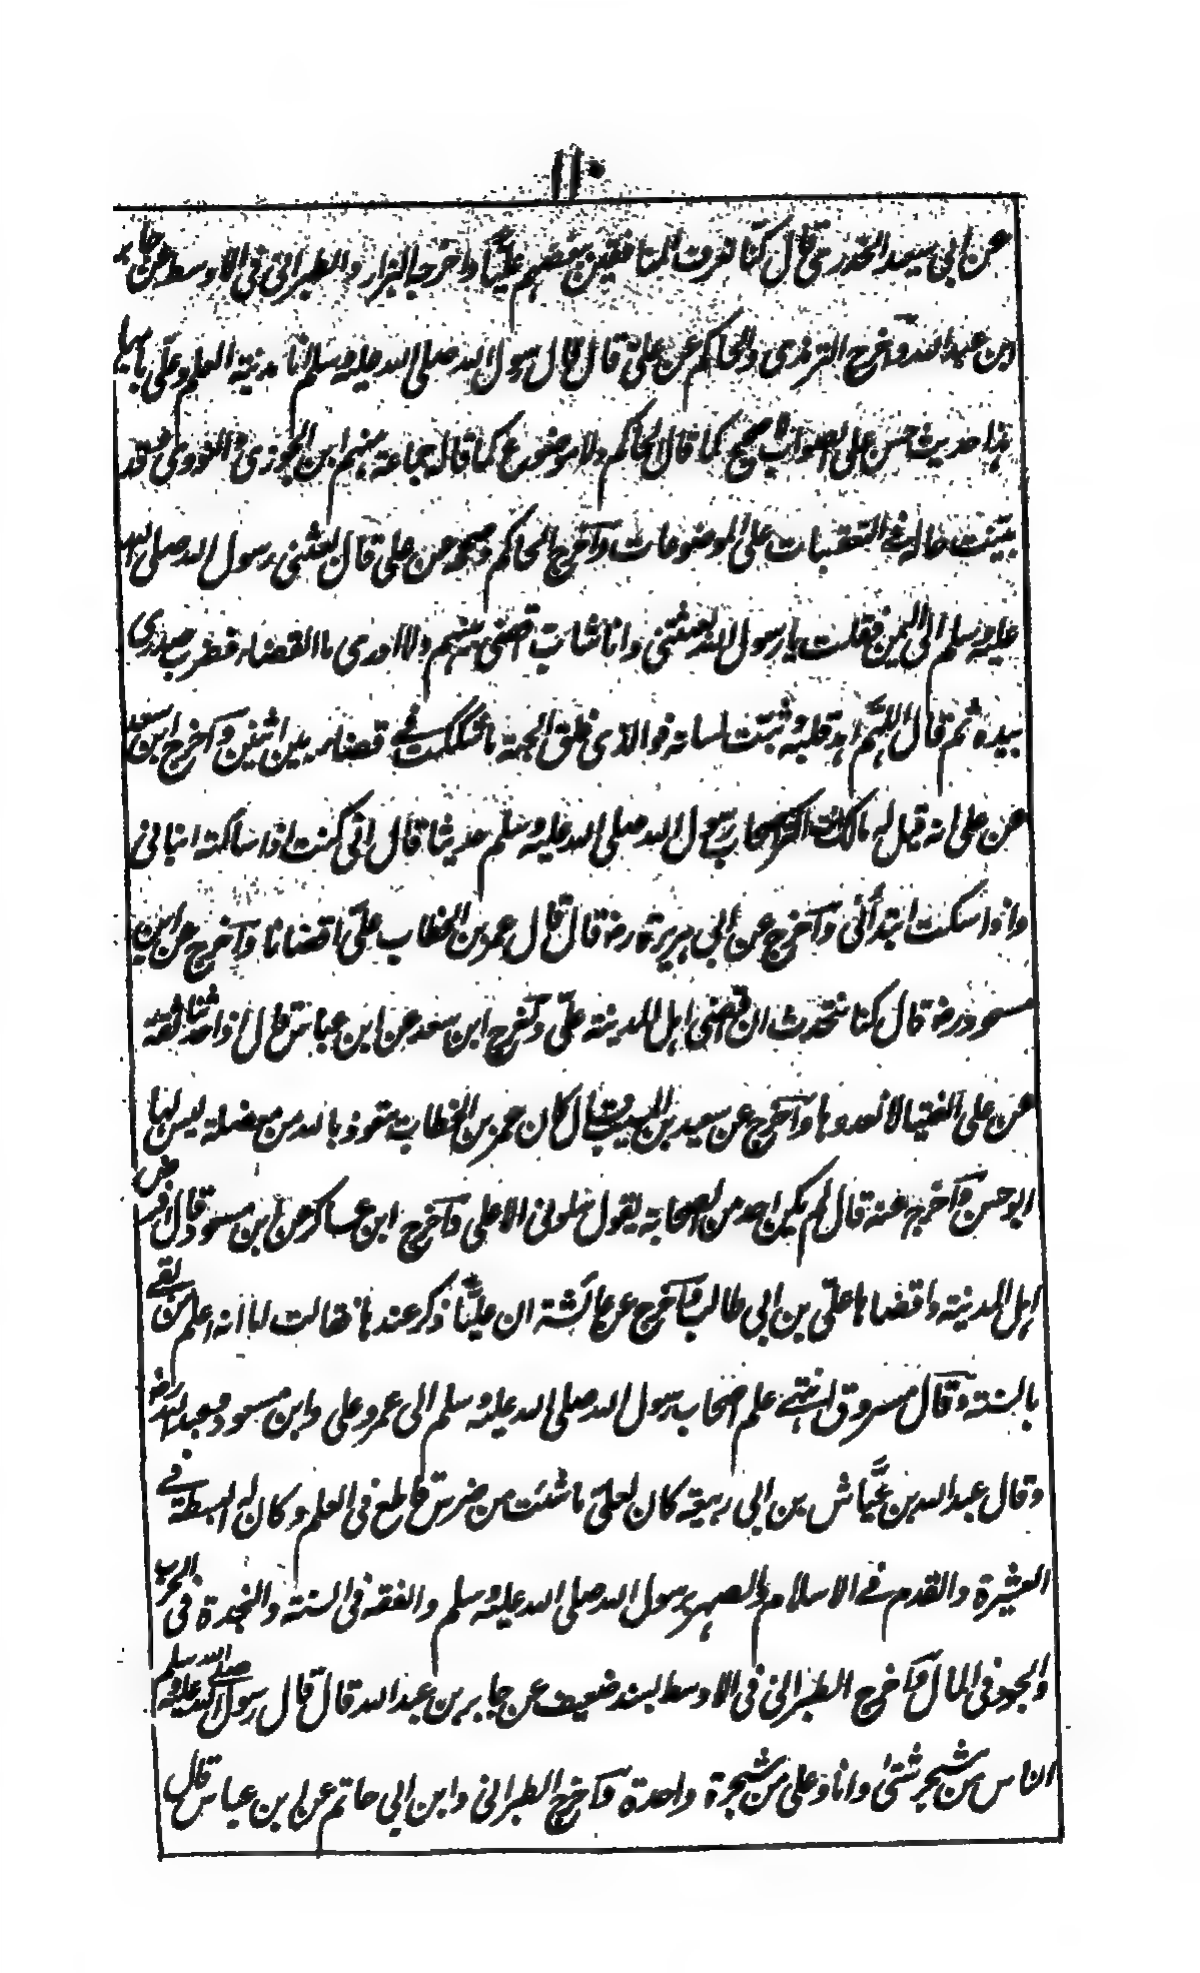 ١١٠
عن ابي سعيد الخدري قال كنا نعرف المنافقين ببغضهم عليًّا واخرج البزار والطبراني في الاوسط عن جابر
ابن عبد الله وآخرج الترمذي والحاكم عن علي قال قال رسول الله صلى الله عليه وسلم انا مدينة العلم وعلي بابها
هذا حديث حسن على الصواب لا صحيح كما قال الحاكم ولا موضوع كما قاله جماعة منهم ابن الجوزي والنووي وقد
بيّنت حاله في التعقبات على الموضوعات وآخرج الحاكم وصححه عن علي قال بعثني رسول الله صلى الله
عليه وسلم الى اليمن فقلت يا رسول الله بعثتني وانا شاب اقضي بينهم ولا ادري ما القضاء فضرب صدري
بيده ثم قال اللهم اهد قلبه وثبت لسانه فوالذي فلق الحبة ما شككت في قضاء بين اثنين وآخرج ابن سعد
عن علي انه قيل له مالك اكثر اصحاب رسول الله صلى الله عليه وسلم حديثا قال اني كنت اذا سألته انبأني
واذا سكت ابتدأني وآخرج عن ابي هريرة رضه قال قال عمر بن الخطاب علي اقضانا وآخرج عن ابن
مسعود رضه قال كنا نتحدث ان اقضى اهل المدينة علي وآخرج ابن سعد عن ابن عباس قال اذا حدثنا ثقة
عن علي الفتيا لا نعدوها وآخرج عن سعيد بن المسيب قال كان عمر بن الخطاب يتعوذ بالله من معضلة ليس لها
ابو حسن وآخرج عنه قال لم يكن احد من الصحابة يقول سلوني الا علي وآخرج ابن عساكر عن ابن مسعود قال افرض
اهل المدينة واقضاها علي بن ابي طالب وآخرج عن عائشة ان عليًّا ذكر عندها فقالت اما انه اعلم من بقي
بالسنة وقال مسروق انتهى علم اصحاب رسول الله صلى الله عليه وسلم الى عمر وعلي وابن مسعود وعبد الله رضه
وقال عبد الله بن عيّاش بن ابي ربيعة كان لعلي ما شئت من ضرس قاطع في العلم وكان له البسطة في
العشيرة والقدم في الاسلام والصهر برسول الله صلى الله عليه وسلم والفقه في السنة والنجدة في الحرب
والجود في المال وآخرج الطبراني في الاوسط بسند ضعيف عن جابر بن عبد الله قال قال رسول الله صلى الله عليه وسلم
الناس من شجر شتى وانا وعلي من شجرة واحدة وآخرج الطبراني وابن ابي حاتم عن ابن عباس قال